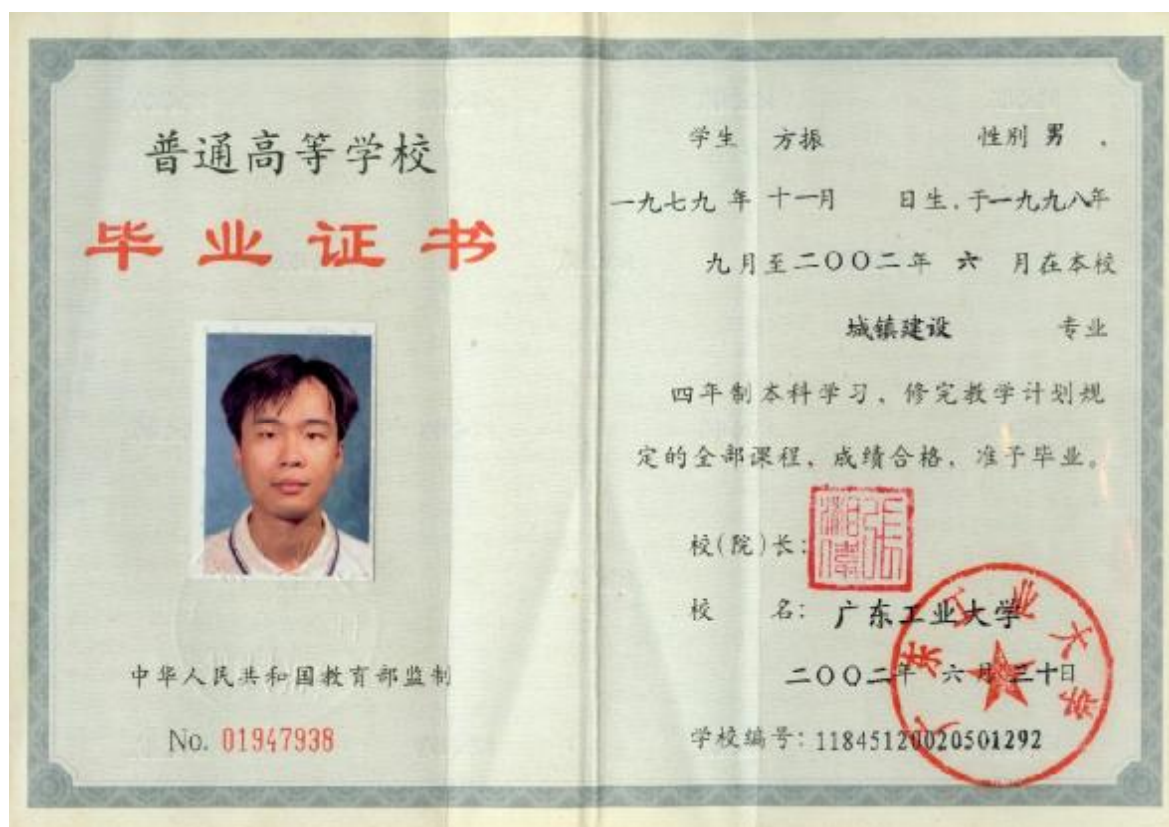 普通高等学校
毕业证书
中华人民共和国教育部监制
No. 01947938
学生 方振 性别 男 ,
一九七九 年 十一月 日生,于一九九八年
九月至二〇〇二年 六 月在本校
城镇建设 专业
四年制本科学习、修完教学计划规
定的全部课程、成绩合格,准予毕业。
校(院)长:
校 名: 广东工业大学
二〇〇二年 六月三十日
学校编号: 11845120020501292
广东工业大学